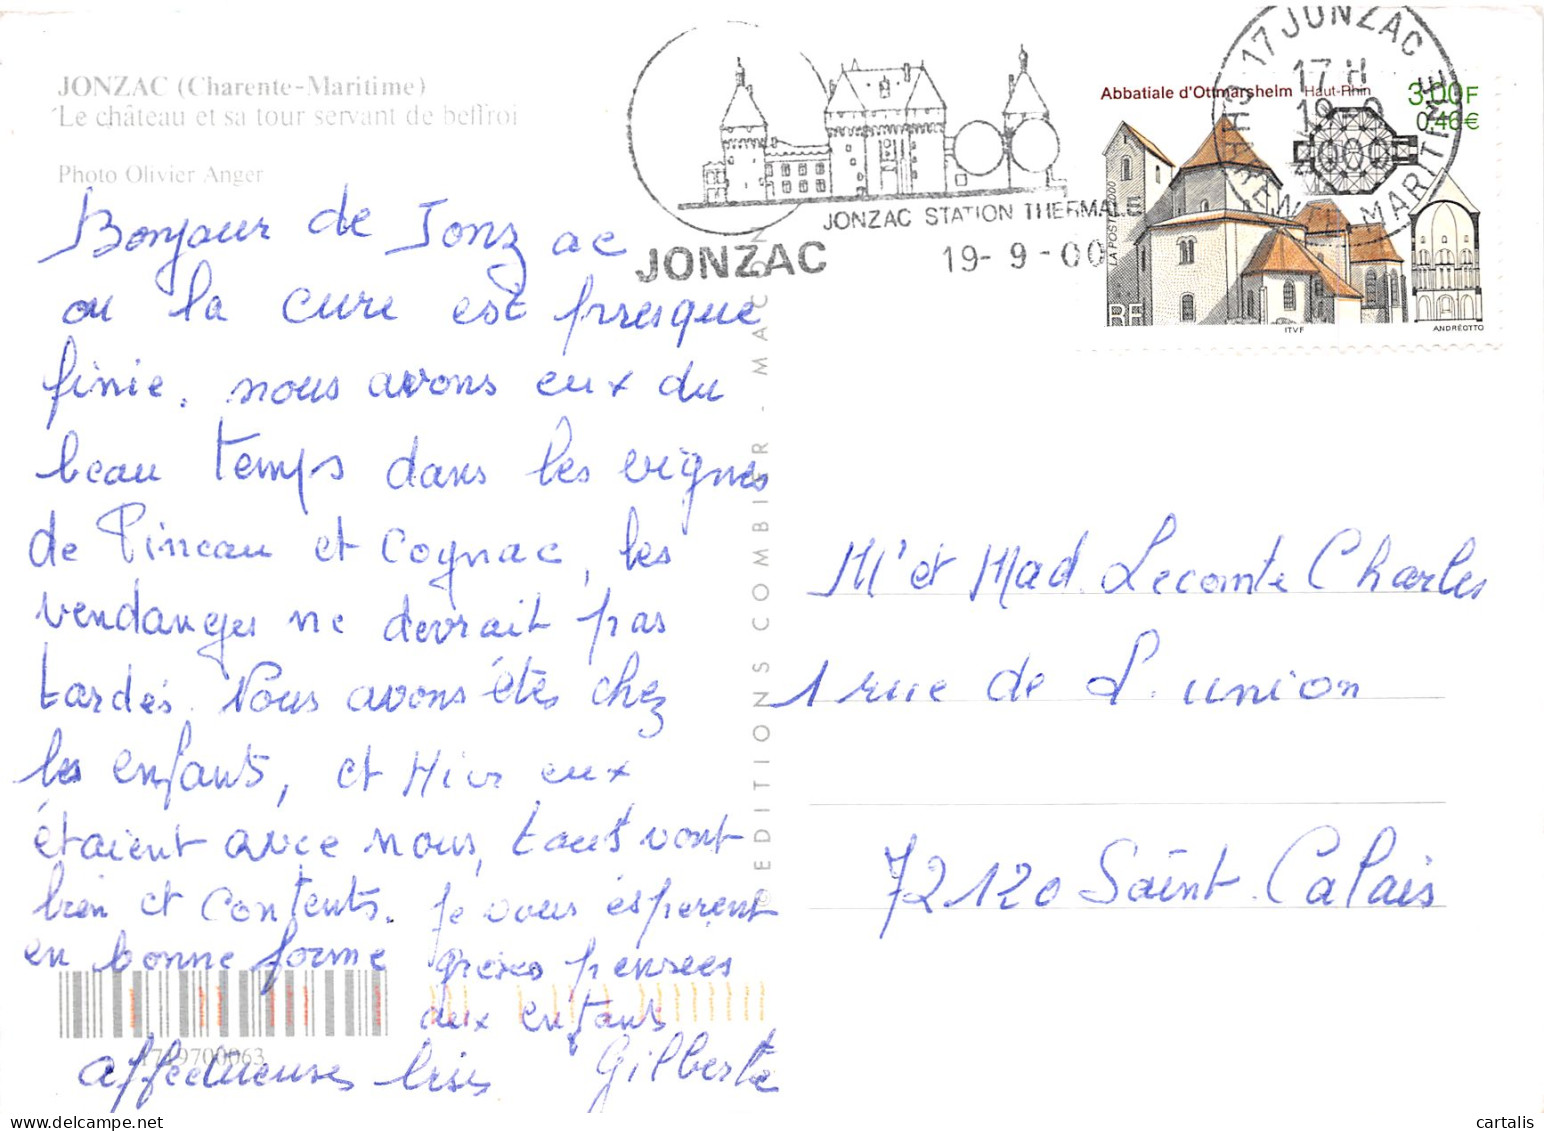 JONZAC (Charente-Maritime)
Le château et sa tour servant de beffroi
Photo Olivier Anger
Bonjour de Jonzac
ou la cure est presque
finie. nous avons eux du
beau temps dans les vignes
de Pineau et Cognac, les
vendanges ne devrait pas
tardés. Nous avons étés chez
les enfants, et Hier eux
étaient avec nous, tout vont
bien et contents. Je vous esperent
en bonne forme pensées
aux enfants
affectueuses bises Gilberte
1719700063
© EDITIONS COMBIER - MACON
JONZAC STATION THERMALE
JONZAC
19-9-00
17 JONZAC
CHARENTE MARITIME
17 H
19-9
Abbatiale d'Ottmarsheim Haut-Rhin
3,00F
0,46€
LA POSTE 2000
RF
ITVF
ANDRÉOTTO
Mr et Mad. Lecomte Charles
1 rue de L'union
72120 Saint Calais
cartalis